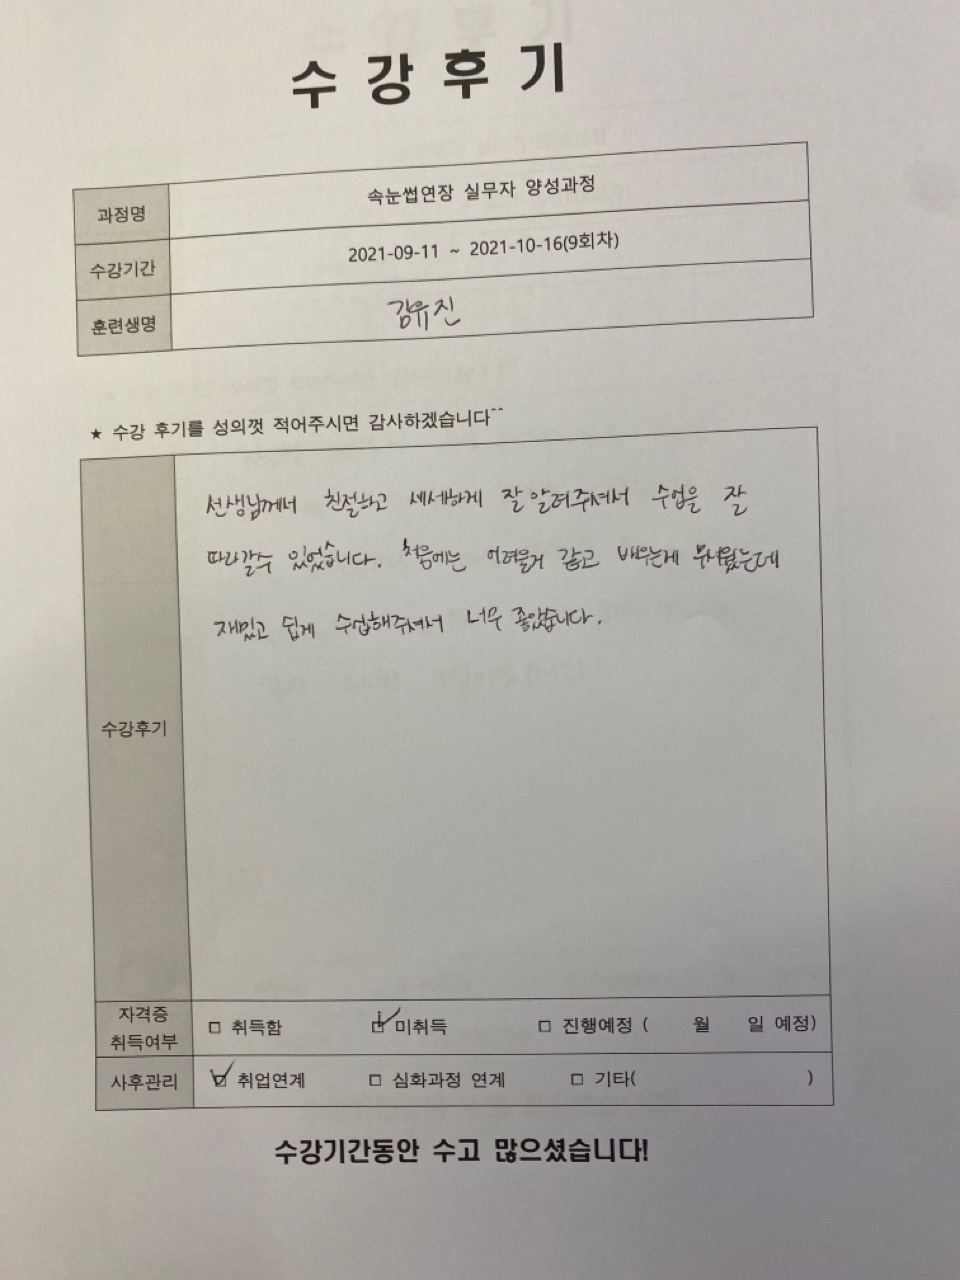 수 강 후 기
과정명 속눈썹연장 실무자 양성과정
수강기간 2021-09-11 ~ 2021-10-16(9회차)
훈련생명 김유진
★ 수강 후기를 성의껏 적어주시면 감사하겠습니다^^
선생님께서 친절하고 세세하게 잘 알려주셔서 수업을 잘
따라갈수 있었습니다. 처음에는 어려울거 같고 배우는게 무서웠는데
재밌고 쉽게 수업해주셔서 너무 좋았습니다.
수강후기
자격증
취득여부 □ 취득함 ☑ 미취득 □ 진행예정 ( 월 일 예정)
사후관리 ☑ 취업연계 □ 심화과정 연계 □ 기타( )
수강기간동안 수고 많으셨습니다!